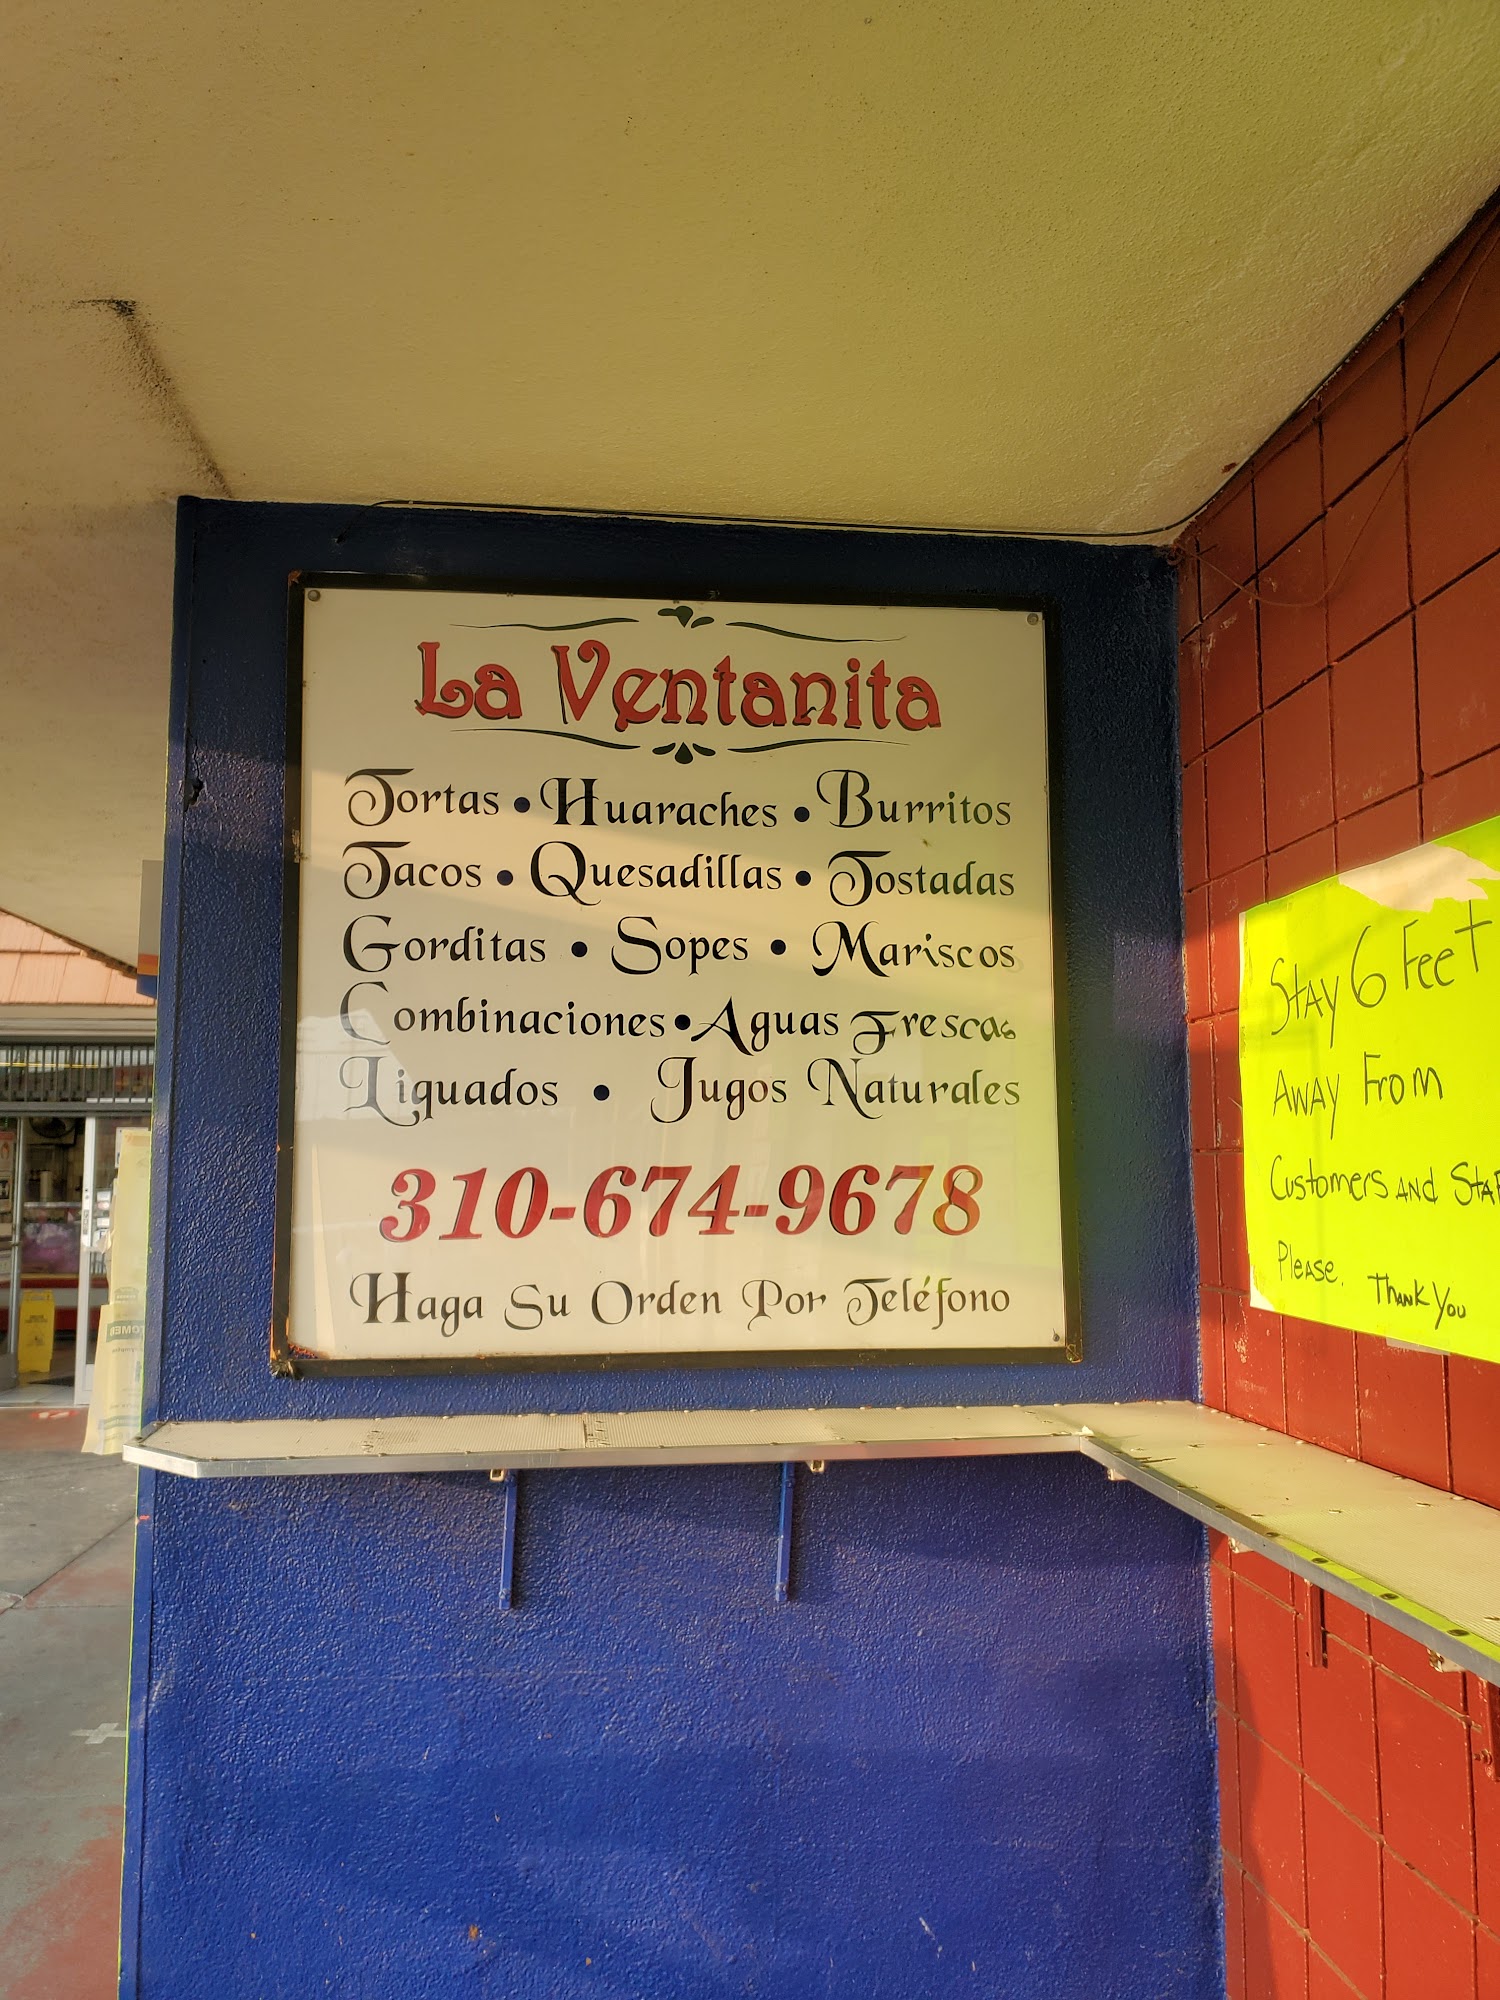 La Ventanita
Tortas • Huaraches • Burritos
Tacos • Quesadillas • Tostadas
Gorditas • Sopes • Mariscos
Combinaciones • Aguas Frescas
Liquados • Jugos Naturales
310-674-9678
Haga Su Orden Por Teléfono
Stay 6 Feet
Away From
Customers and
Please. Thank You